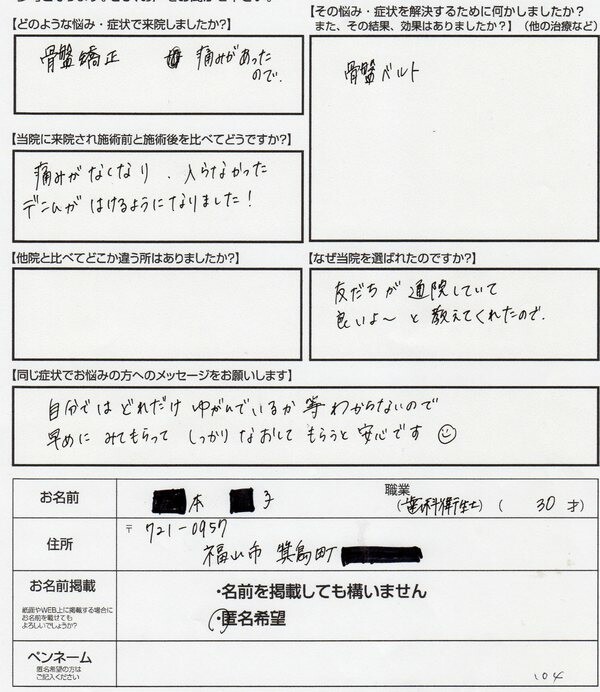 【どのような悩み・症状で来院しましたか?】
骨盤矯正 痛みがあった
ので.
【その悩み・症状を解決するために何かしましたか?
また、その結果、効果はありましたか?】(他の治療など)
骨盤ベルト
【当院に来院され施術前と施術後を比べてどうですか?】
痛みがなくなり、入らなかった
デニムがはけるようになりました!
【他院と比べてどこか違う所はありましたか?】
【なぜ当院を選ばれたのですか?】
友だちが通院していて
良いよ〜と教えてくれたので.
【同じ症状でお悩みの方へのメッセージをお願いします】
自分ではどれだけゆがんでいるか等わからないので
早めにみてもらってしっかりなおしてもらうと安心です
お名前 本 子 職業 (歯科衛生士) ( 30 才)
住所 〒721-0957
福山市 箕島町
お名前掲載 ・名前を掲載しても構いません
紙面やWEB上に掲載する場合に
お名前を載せても
よろしいでしょうか?
・匿名希望
ペンネーム
匿名希望の方は
ご記入ください
.04